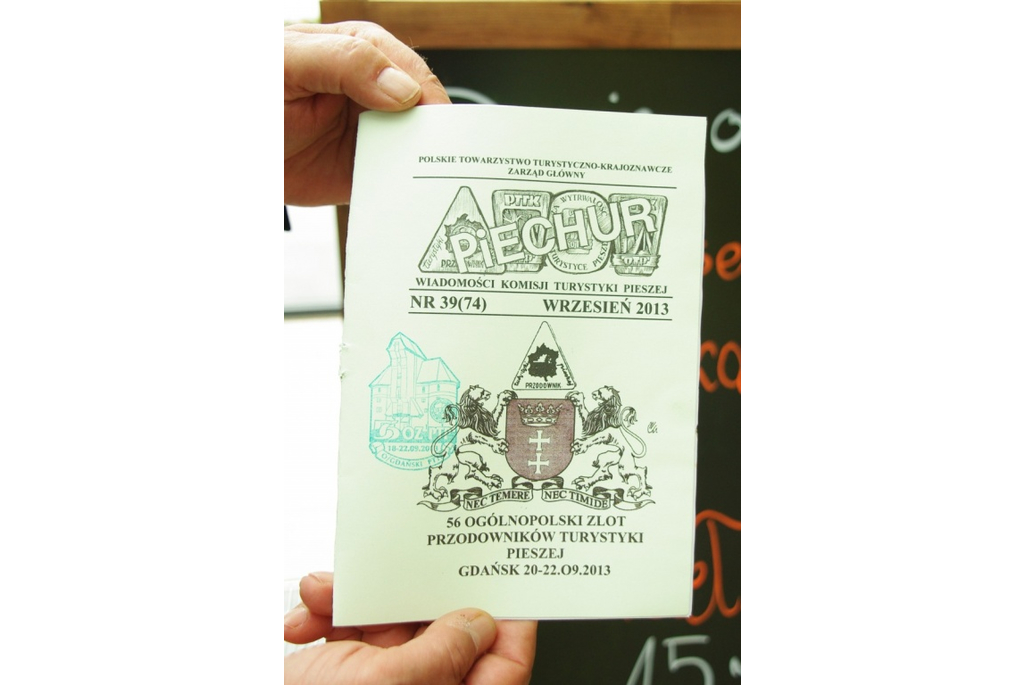 POLSKIE TOWARZYSTWO TURYSTYCZNO-KRAJOZNAWCZE
ZARZĄD GŁÓWNY
PTTK
WYTRWAŁOŚ
PiECHUR
TURYSTYCE PIESZEJ
OTP
WIADOMOŚCI KOMISJI TURYSTYKI PIESZEJ
NR 39(74) WRZESIEŃ 2013
PRZODOWNIK
OZ PTP
18-22.09.20
O/GDAŃSKI
NEC TEMERE NEC TIMIDE
56 OGÓLNOPOLSKI ZLOT
PRZODOWNIKÓW TURYSTYKI
PIESZEJ
GDAŃSK 20-22.O9.2013
15